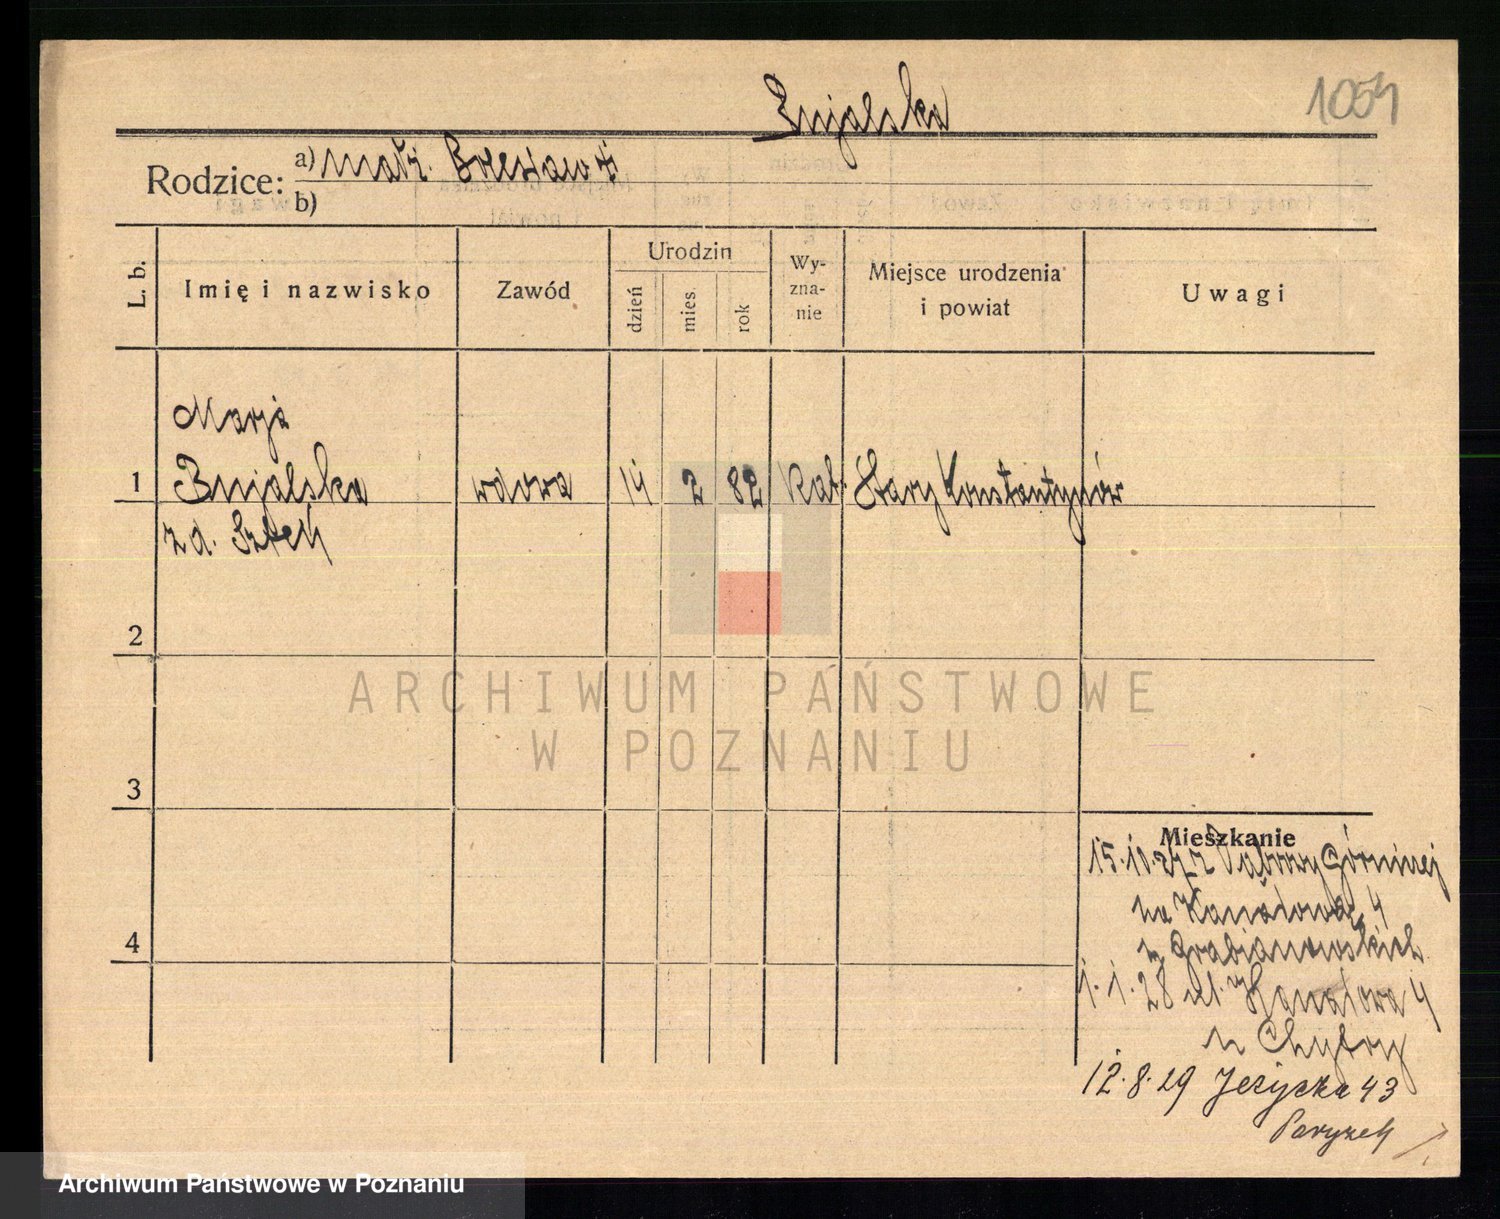 Bujalska
1054
Rodzice: a) małż. Bolesław +
b)
L. b.
Imię i nazwisko
Zawód
Urodzin
dzień
mies.
rok
Wy-
zna-
nie
Miejsce urodzenia
i powiat
Uwagi
Marja
1 Bujalska wdowa 14 2 82 kat. Stary Konstantynów
z d.
2
3
4
ARCHIWUM PAŃSTWOWE
W POZNANIU
Mieszkanie
15.10.27 z Dąbrowy Górniczej
na Kanałową 4
u Grabianowskich
1.1.28 ul. Kanałowa 4
u
12.8.29 Jeżycka 43
Archiwum Państwowe w Poznaniu